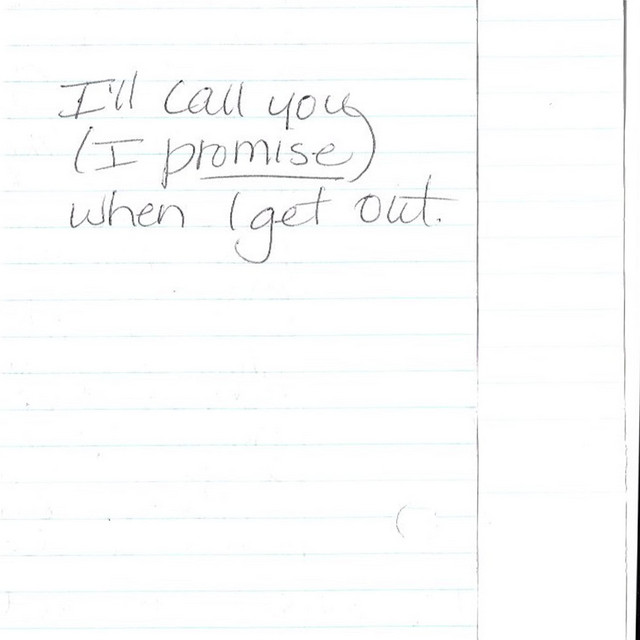 I'll call you
(I promise)
when I get out.